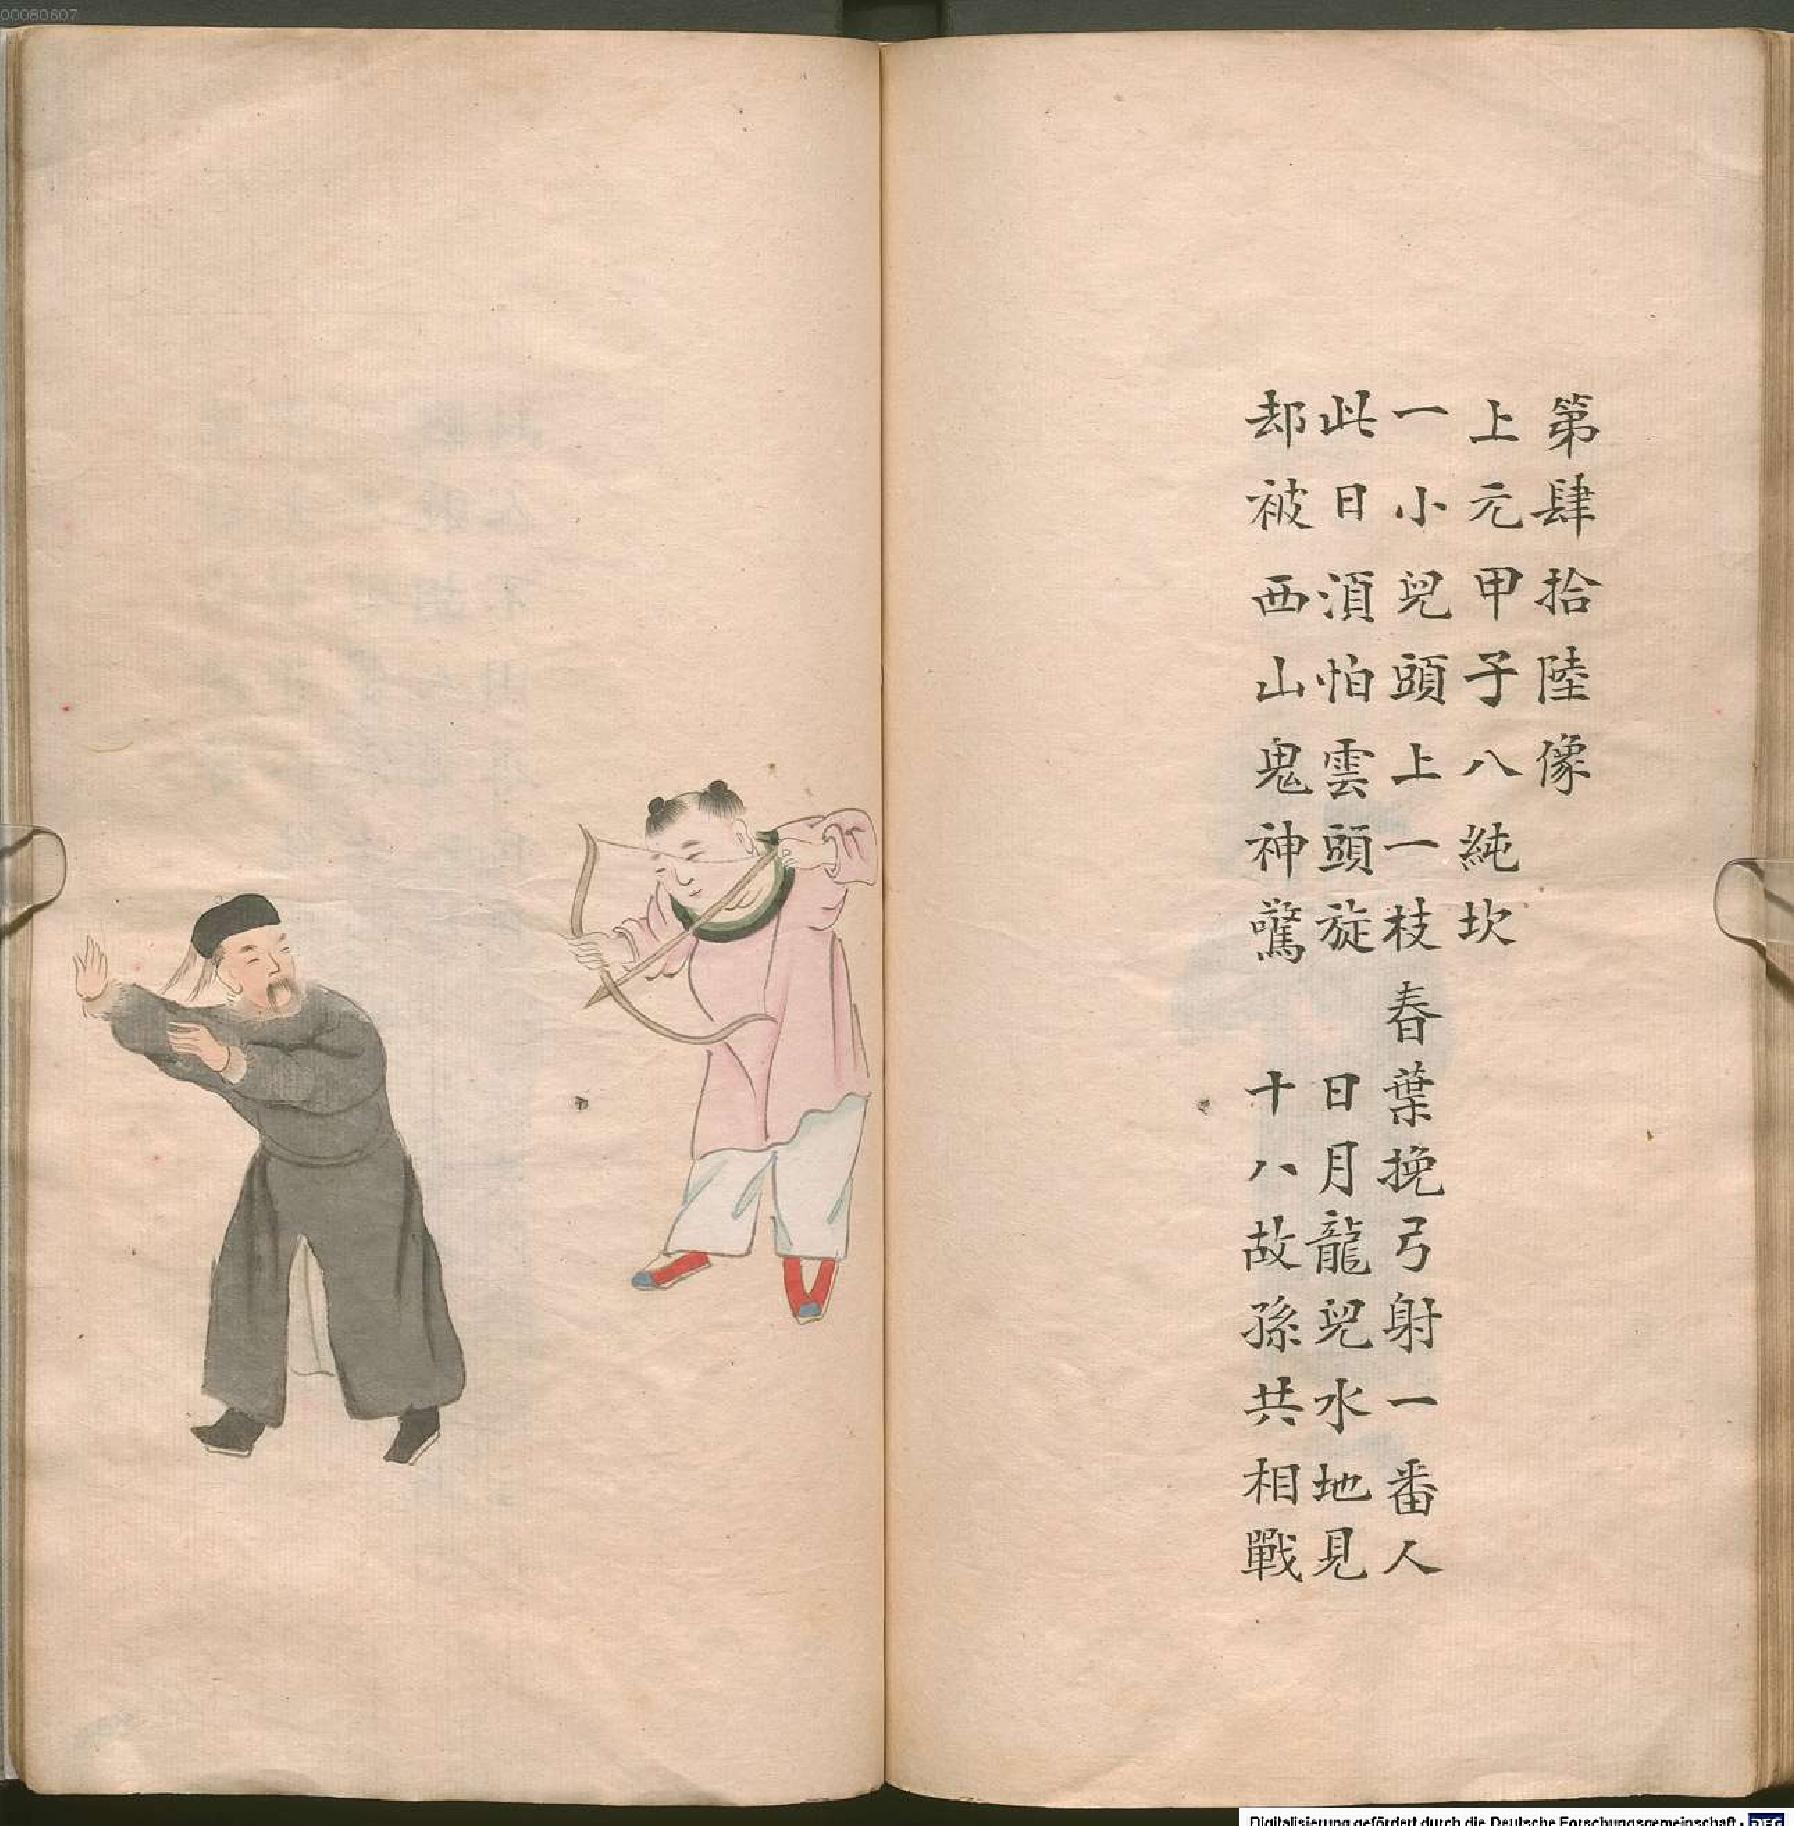 00080607
第肆拾陸像
上元甲子八純坎
一小兒頭上一枝春葉挽弓射一番人
此日湏怕雲頭旋 日月龍兒水地見
却被西山鬼神驚 十八故孫共相戰
Digitalisierung gefördert durch die Deutsche Forschungsgemeinschaft - DFG